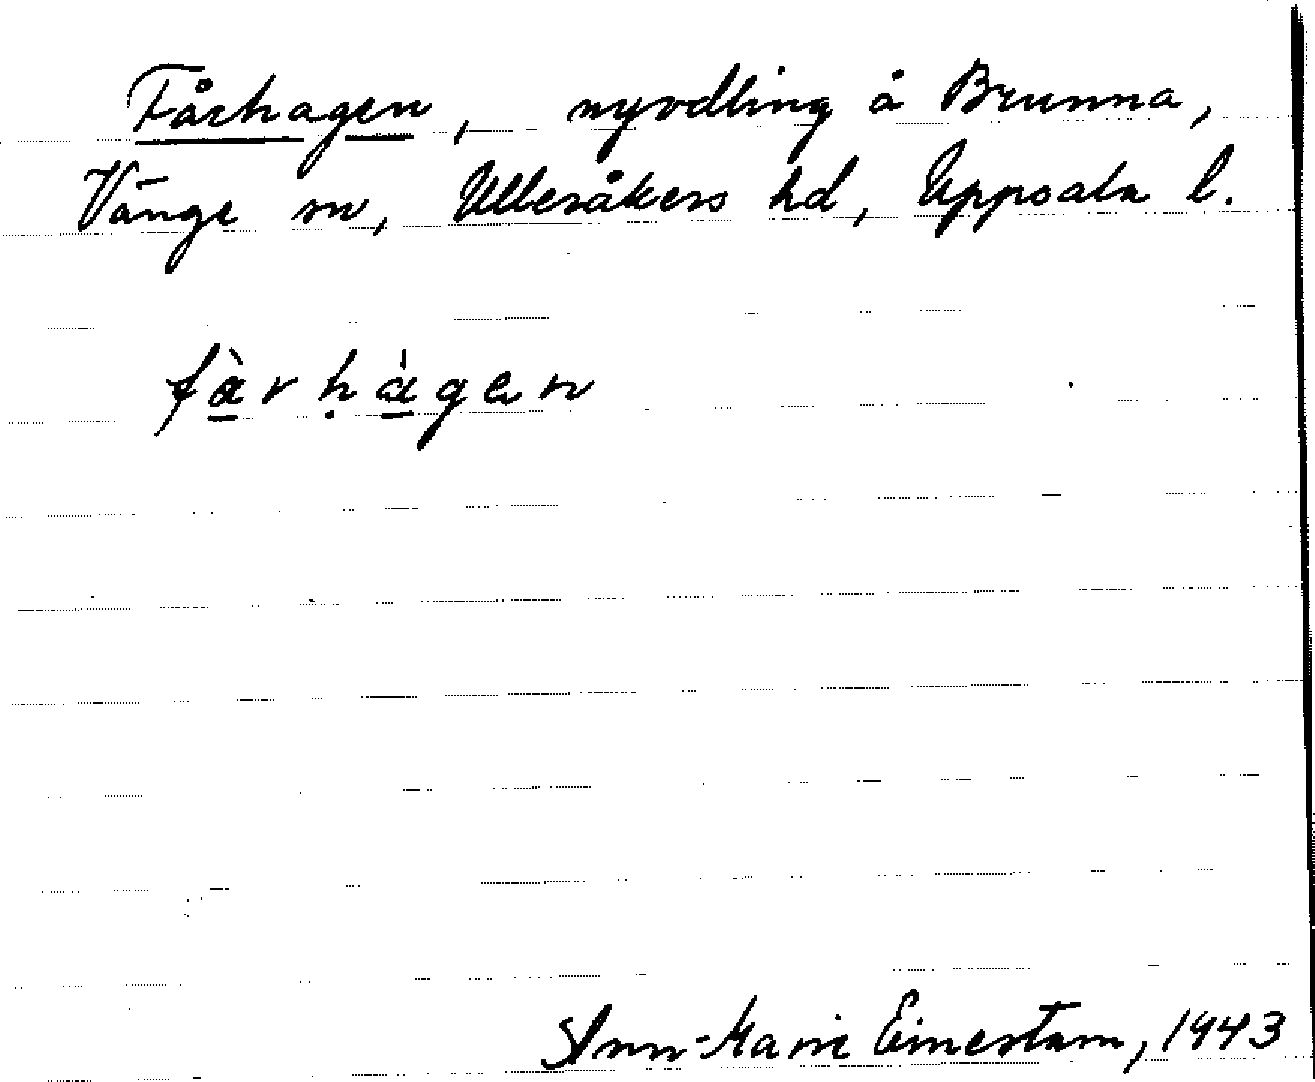 Fårhagen, nyodling å Brunna,
Vänge sn, Ulleråkers hd, Uppsala l.
fàrḥàgen
Ann-Marie Einestam, 1943